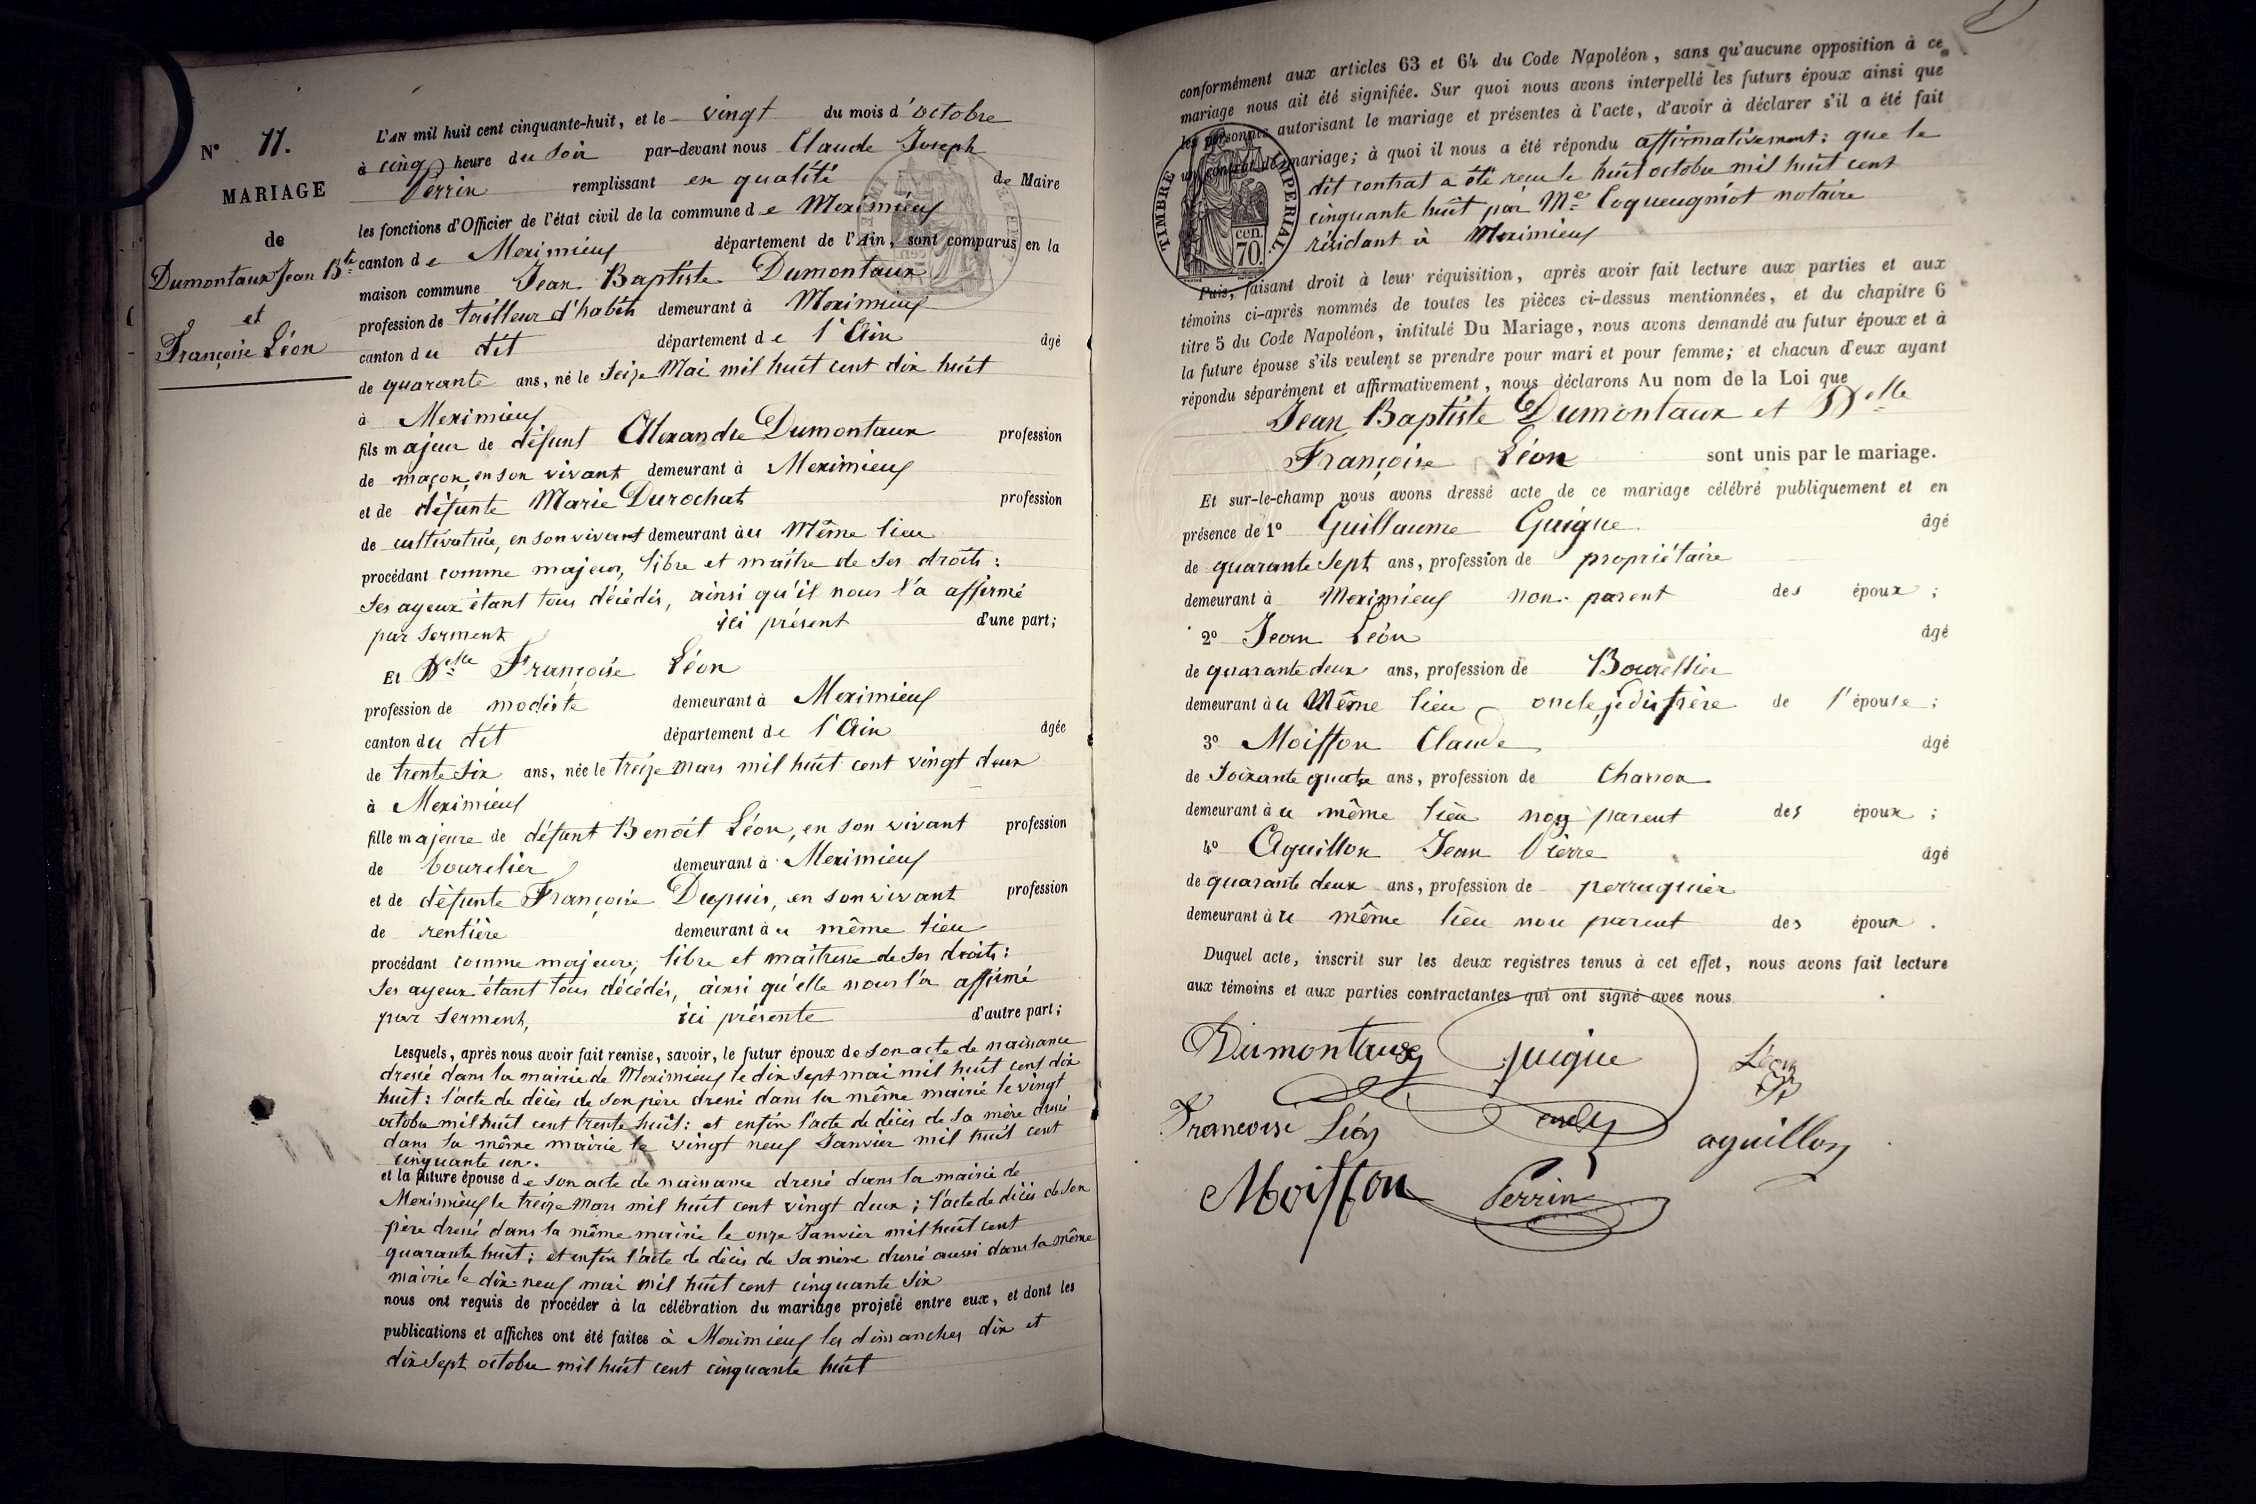 N° 11.
MARIAGE
de
Dumontaux Jean Bte
et
Françoise Léon
L'AN mil huit cent cinquante-huit, et le vingt du mois d'octobre
à cinq heure du soir par-devant nous Claude Joseph
Perrin remplissant en qualité de Maire
les fonctions d'Officier de l'état civil de la commune de Meximieux
canton de Meximieux département de l'Ain, sont comparus en la
maison commune Jean Baptiste Dumontaux
profession de tailleur d'habits demeurant à Meximieux
canton du dit département de l'Ain âgé
de quarante ans, né le seize Mai mil huit cent dix huit
à Meximieux
fils majeur de défunt Alexandre Dumontaux profession
de maçon, en son vivant demeurant à Meximieux
et de défunte Marie Durochat profession
de cultivatrice, en son vivant demeurant au Même lieu
procédant comme majeur, libre et maître de ses droits:
ses ayeux étant tous décédés, ainsi qu'il nous l'a affirmé
par serment ici présent d'une part;
Et Delle Françoise Léon
profession de modiste demeurant à Meximieux
canton du dit département de l'Ain âgée
de trente six ans, née le treize mars mil huit cent vingt deux
à Meximieux
fille majeure de défunt Benoît Léon, en son vivant profession
de bourelier demeurant à Meximieux
et de défunte Françoise Dupuis, en son vivant profession
de rentière demeurant au même lieu
procédant comme majeure, libre et maîtresse de ses droits:
ses ayeux étant tous décédés, ainsi qu'elle nous l'a affirmé
par serment, ici présente d'autre part;
Lesquels, après nous avoir fait remise, savoir, le futur époux de son acte de naissance
dressé dans la mairie de Meximieux le dix sept mai mil huit cent dix
huit: l'acte de décès de son père dressé dans la même mairie le vingt
octobre mil huit cent trente huit: et enfin l'acte de décès de sa mère dressé
dans la même mairie le vingt neuf Janvier mil huit cent
cinquante un.
et la future épouse de son acte de naissance dressé dans la mairie de
Meximieux le treize Mars mil huit cent vingt deux; l'acte de décès de son
père dressé dans la même mairie le onze Janvier mil huit cent
quarante huit; et enfin l'acte de décès de sa mère dressé aussi dans la même
mairie le dix-neuf mai mil huit cent cinquante six
nous ont requis de procéder à la célébration du mariage projeté entre eux, et dont les
publications et affiches ont été faites à Meximieux les dimanches dix et
dix sept octobre mil huit cent cinquante huit
conformément aux articles 63 et 64 du Code Napoléon, sans qu'aucune opposition à ce
mariage nous ait été signifiée. Sur quoi nous avons interpellé les futurs époux ainsi que
les personnes autorisant le mariage et présentes à l'acte, d'avoir à déclarer s'il a été fait
un contrat de mariage; à quoi il nous a été répondu affirmativement: que le
dit contrat a été reçu le huit octobre mil huit cent
cinquante huit par Me Coqueugniot notaire
résidant à Meximieux
TIMBRE IMPERIAL
70 cen.
Puis, faisant droit à leur réquisition, après avoir fait lecture aux parties et aux
témoins ci-après nommés de toutes les pièces ci-dessus mentionnées, et du chapitre 6
titre 5 du Code Napoléon, intitulé Du Mariage, nous avons demandé au futur époux et à
la future épouse s'ils veulent se prendre pour mari et pour femme; et chacun d'eux ayant
répondu séparément et affirmativement, nous déclarons Au nom de la Loi que
Jean Baptiste Dumontaux et Delle
Françoise Léon sont unis par le mariage.
Et sur-le-champ nous avons dressé acte de ce mariage célébré publiquement et en
présence de 1° Guillaume Guigue âgé
de quarante sept ans, profession de propriétaire
demeurant à Meximieux non parent des époux;
2° Jean Léon âgé
de quarante deux ans, profession de Bourellier
demeurant au Même lieu, oncle, je dis frère de l'épouse;
3° Moiffon Claude âgé
de soixante quatre ans, profession de Charron
demeurant au même lieu non parent des époux;
4° Aguillon Jean Pierre âgé
de quarante deux ans, profession de perruquier
demeurant au même lieu non parent des époux.
Duquel acte, inscrit sur les deux registres tenus à cet effet, nous avons fait lecture
aux témoins et aux parties contractantes qui ont signé avec nous.
Dumontaux Guigue Léon
Françoise Léon aguillon
Moiffon Perrin